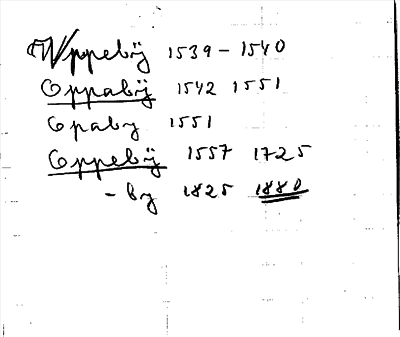 Wppebÿ 1539 – 1540
Oppabÿ 1542 1551
Opaby 1551
Oppebÿ 1557 1725
- by 1825 1880